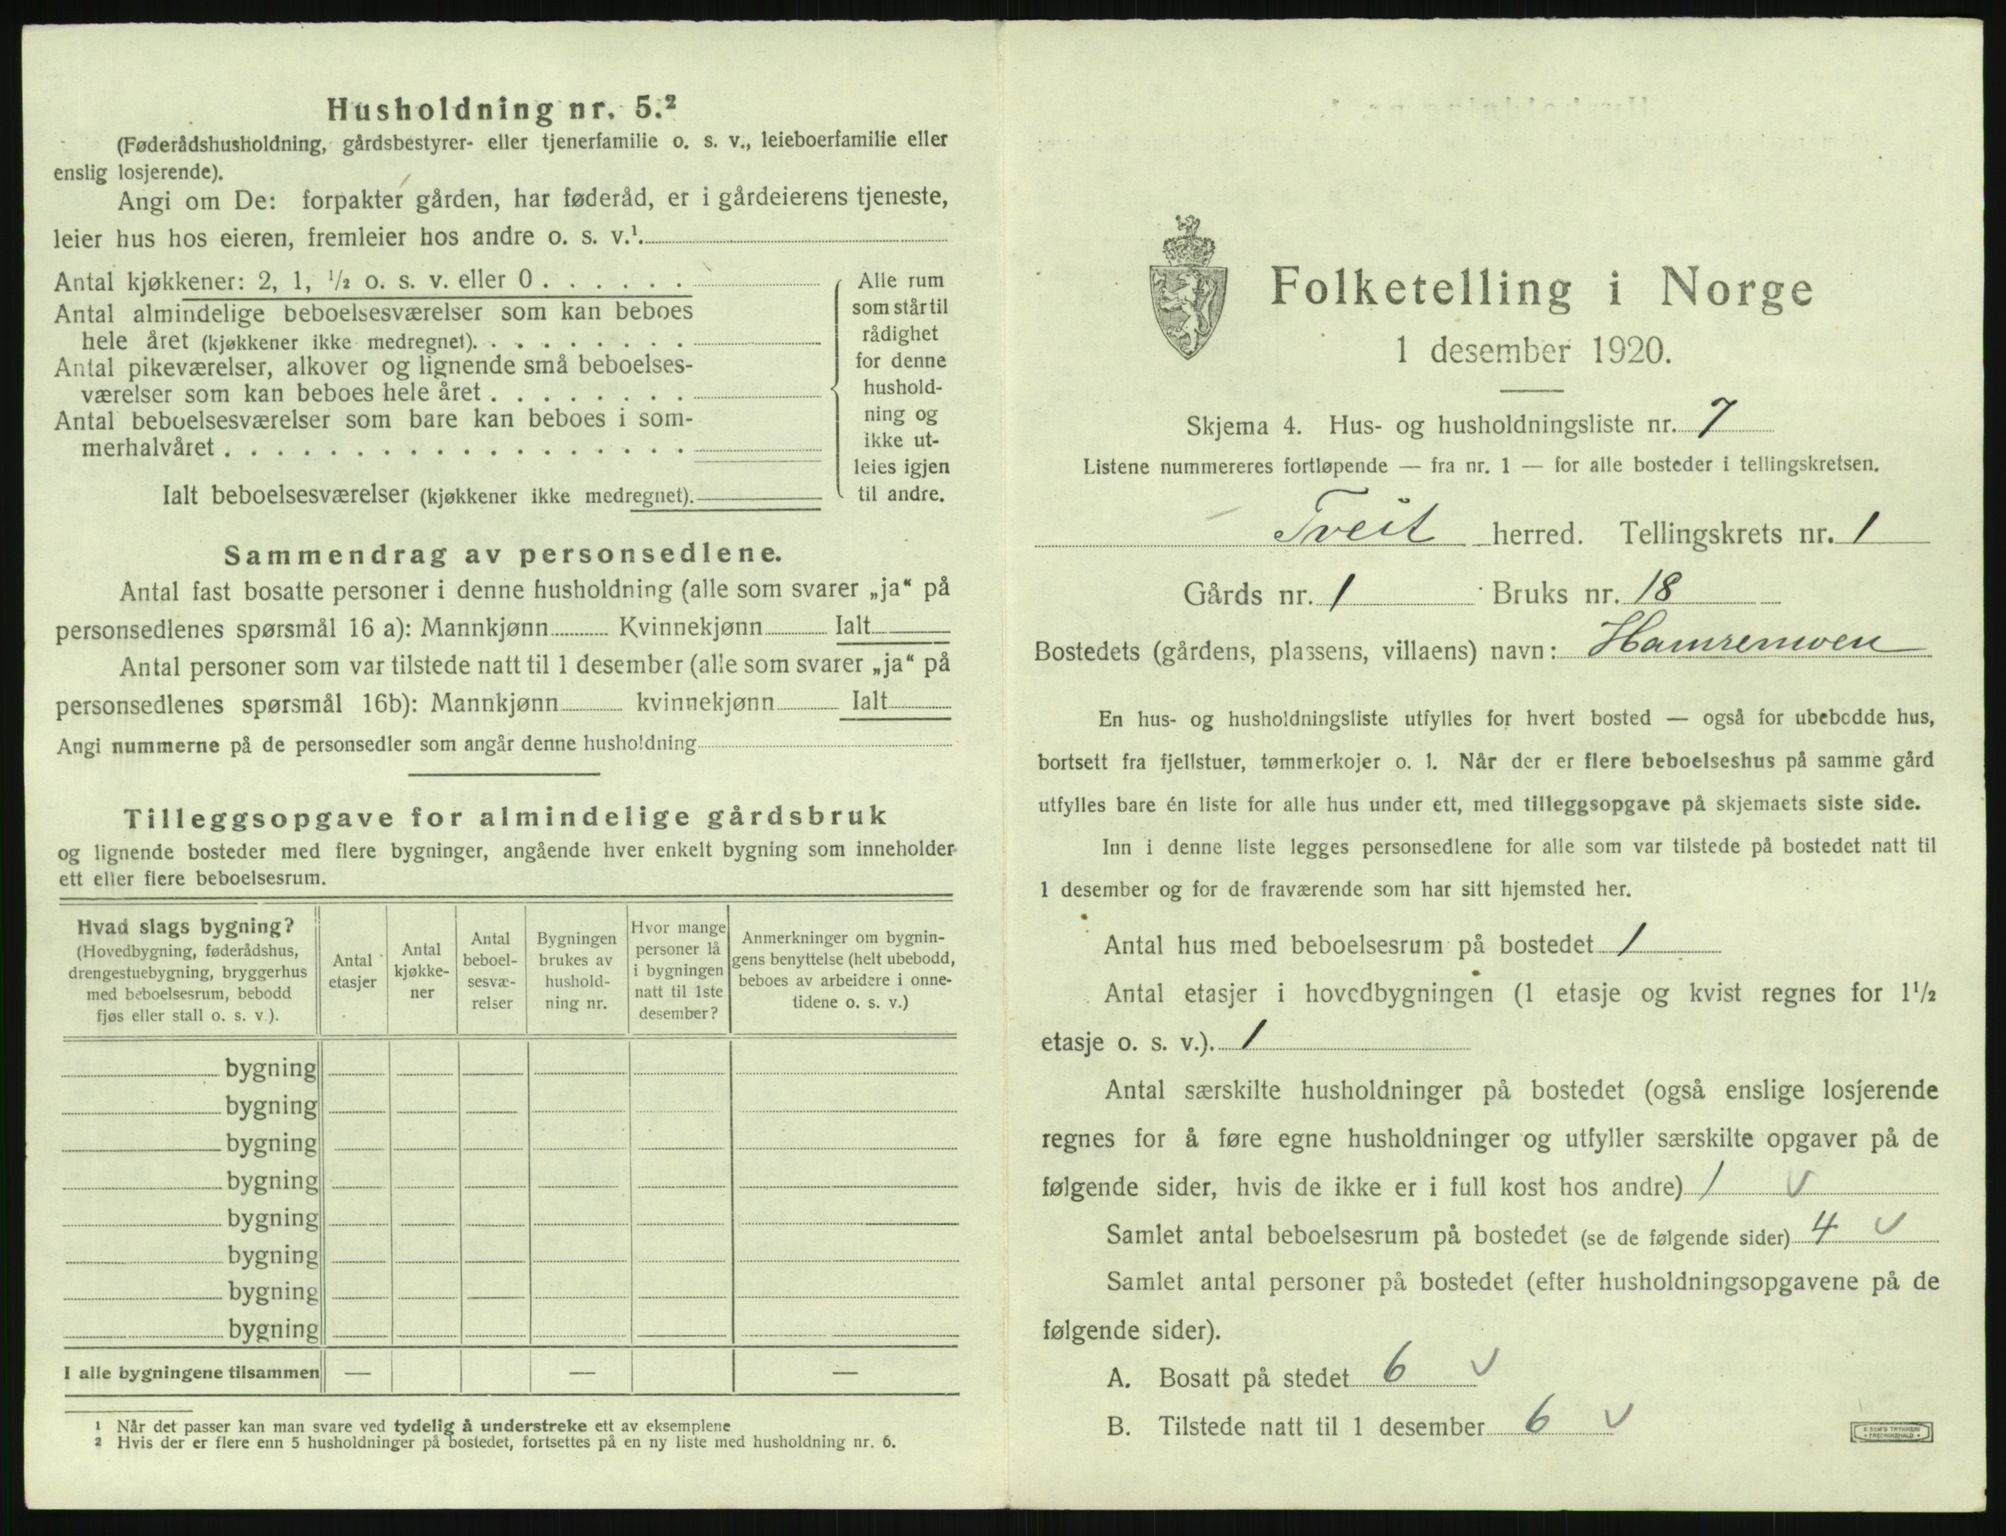 Husholdning nr. 5.²
(Føderådshusholdning, gårdsbestyrer- eller tjenerfamilie o. s. v., leieboerfamilie eller
enslig losjerende).
Angi om De: forpakter gården, har føderåd, er i gårdeierens tjeneste,
leier hus hos eieren, fremleier hos andre o. s. v.¹
Antal kjøkkener: 2, 1, ½ o. s. v. eller 0 . . . . . .
Antal almindelige beboelsesværelser som kan beboes
hele året (kjøkkener ikke medregnet). . . . . . . . .
Antal pikeværelser, alkover og lignende små beboelses-
værelser som kan beboes hele året . . . . . . . .
Antal beboelsesværelser som bare kan beboes i som-
merhalvåret . . . . . . . . . . . . . . . . . .
Ialt beboelsesværelser (kjøkkener ikke medregnet).
Alle rum
som står til
rådighet
for denne
hushold-
ning og
ikke ut-
leies igjen
til andre.
Sammendrag av personsedlene.
Antal fast bosatte personer i denne husholdning (alle som svarer „ja“ på
personsedlenes spørsmål 16 a): Mannkjønn Kvinnekjønn Ialt
Antal personer som var tilstede natt til 1 desember (alle som svarer „ja“ på
personsedlenes spørsmål 16b): Mannkjønn kvinnekjønn Ialt
Angi nummerne på de personsedler som angår denne husholdning
Tilleggsopgave for almindelige gårdsbruk
og lignende bosteder med flere bygninger, angående hver enkelt bygning som inneholder
ett eller flere beboelsesrum.
Hvad slags bygning?
(Hovedbygning, føderådshus,
drengestuebygning, bryggerhus
med beboelsesrum, bebodd
fjøs eller stall o. s. v.).
Antal
etasjer
Antal
kjøkke-
ner
Antal
beboel-
sesvæ-
relser
Bygningen
brukes av
hushold-
ning nr.
Hvor mange
personer lå
i bygningen
natt til 1ste
desember?
Anmerkninger om bygnin-
gens benyttelse (helt ubebodd,
beboes av arbeidere i onne-
tidene o. s. v.)
bygning
bygning
bygning
bygning
bygning
bygning
bygning
bygning
I alle bygningene tilsammen — — —
¹ Når det passer kan man svare ved tydelig å understreke ett av eksemplene
² Hvis der er flere enn 5 husholdninger på bostedet, fortsettes på en ny liste med husholdning nr. 6.
Folketelling i Norge
1 desember 1920.
Skjema 4. Hus- og husholdningsliste nr. 7
Listene nummereres fortløpende — fra nr. 1 — for alle bosteder i tellingskretsen.
Tveit herred. Tellingskrets nr. 1
Gårds nr. 1 Bruks nr. 18
Bostedets (gårdens, plassens, villaens) navn: Hamremoen
En hus- og husholdningsliste utfylles for hvert bosted — også for ubebodde hus,
bortsett fra fjellstuer, tømmerkojer o. l. Når der er flere beboelseshus på samme gård
utfylles bare én liste for alle hus under ett, med tilleggsopgave på skjemaets siste side.
Inn i denne liste legges personsedlene for alle som var tilstede på bostedet natt til
1 desember og for de fraværende som har sitt hjemsted her.
Antal hus med beboelsesrum på bostedet 1
Antal etasjer i hovedbygningen (1 etasje og kvist regnes for 1½
etasje o. s. v.). 1
Antal særskilte husholdninger på bostedet (også enslige losjerende
regnes for å føre egne husholdninger og utfyller særskilte opgaver på de
følgende sider, hvis de ikke er i full kost hos andre) 1 v
Samlet antal beboelsesrum på bostedet (se de følgende sider) 4 v
Samlet antal personer på bostedet (efter husholdningsopgavene på de
følgende sider).
A. Bosatt på stedet 6 v
B. Tilstede natt til 1 desember 6 v